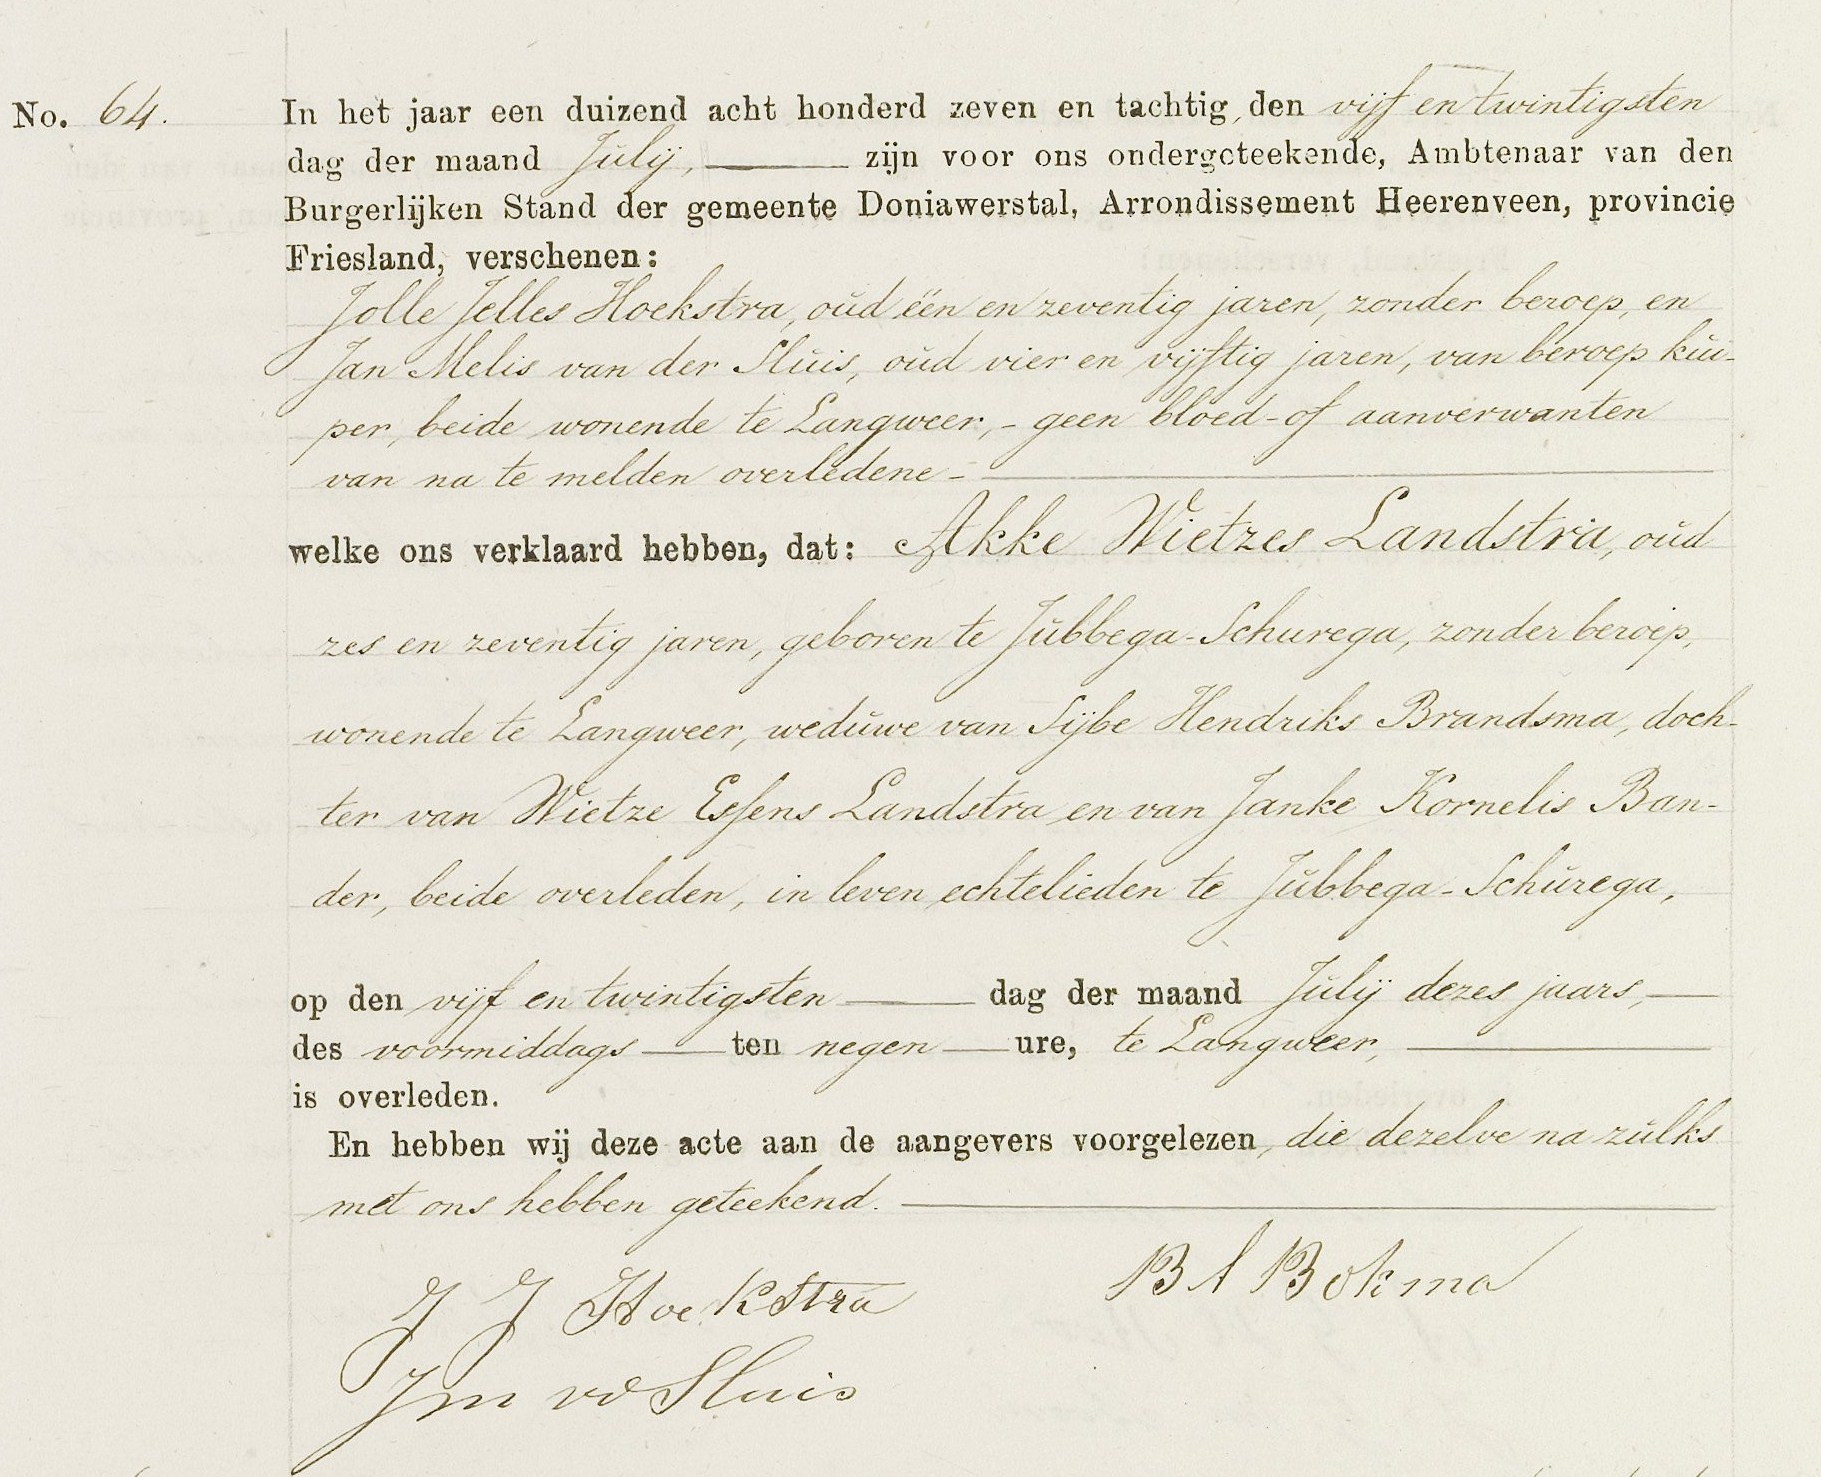 No. 64. In het jaar een duizend acht honderd zeven en tachtig, den vijf en twintigsten
dag der maand Julij, zijn voor ons ondergeteekende, Ambtenaar van den
Burgerlijken Stand der gemeente Doniawerstal, Arrondissement Heerenveen, provincie
Friesland, verschenen:
Jolle Jelles Hoekstra, oud één en zeventig jaren, zonder beroep, en
Jan Melis van der Sluis, oud vier en vijftig jaren, van beroep kui-
per, beide wonende te Langweer, - geen bloed- of aanverwanten
van na te melden overledene -
welke ons verklaard hebben, dat: Akke Wietzes Landstra, oud
zes en zeventig jaren, geboren te Jubbega-Schurega, zonder beroep,
wonende te Langweer, weduwe van Sijbe Hendriks Brandsma, doch-
ter van Wietze Essens Landstra en van Janke Kornelis Ban-
der, beide overleden, in leven echtelieden te Jubbega-Schurega,
op den vijf en twintigsten dag der maand Julij dezes jaars,
des voormiddags ten negen ure, te Langweer,
is overleden.
En hebben wij deze acte aan de aangevers voorgelezen, die dezelve na zulks
met ons hebben geteekend.
B A Bokma
J J Hoekstra
J m vd Sluis